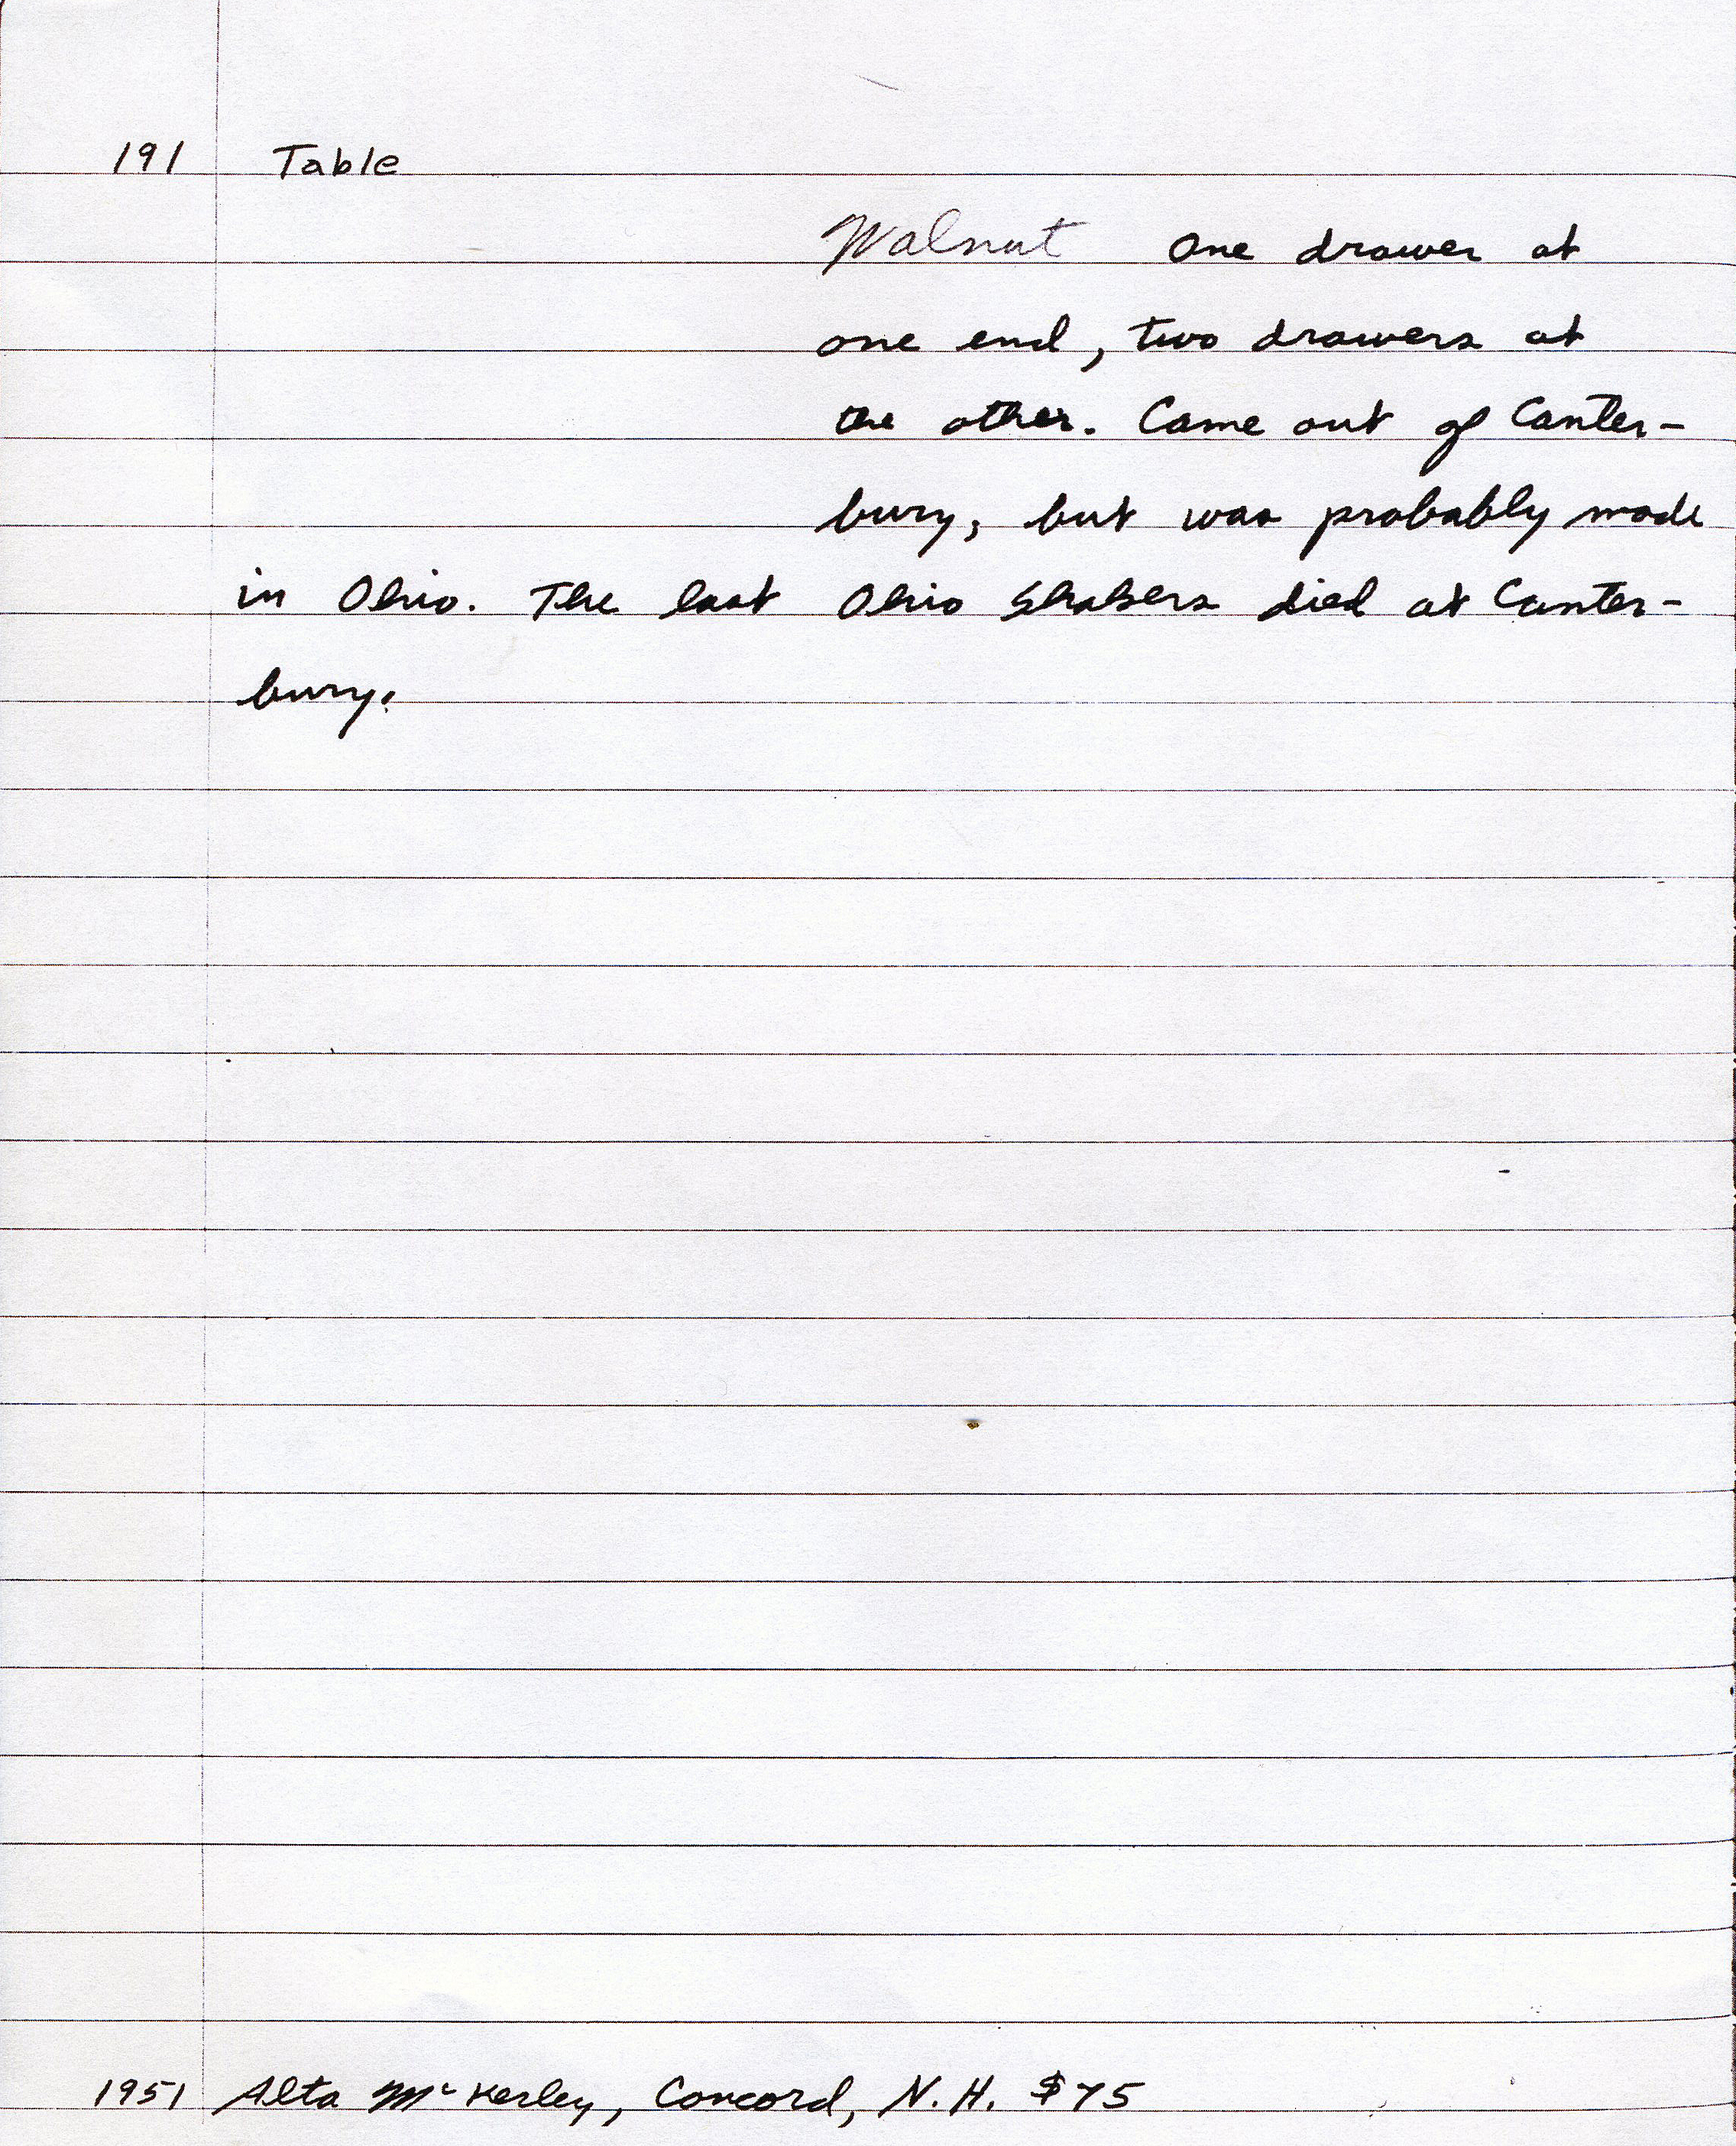 191 Table
Walnut One drawer at
one end, two drawers at
the other. Came out of Canter-
bury, but was probably made
in Ohio. The last Ohio Shakers died at Canter-
bury.
1951 Alta McKerley, Concord, N.H. $75